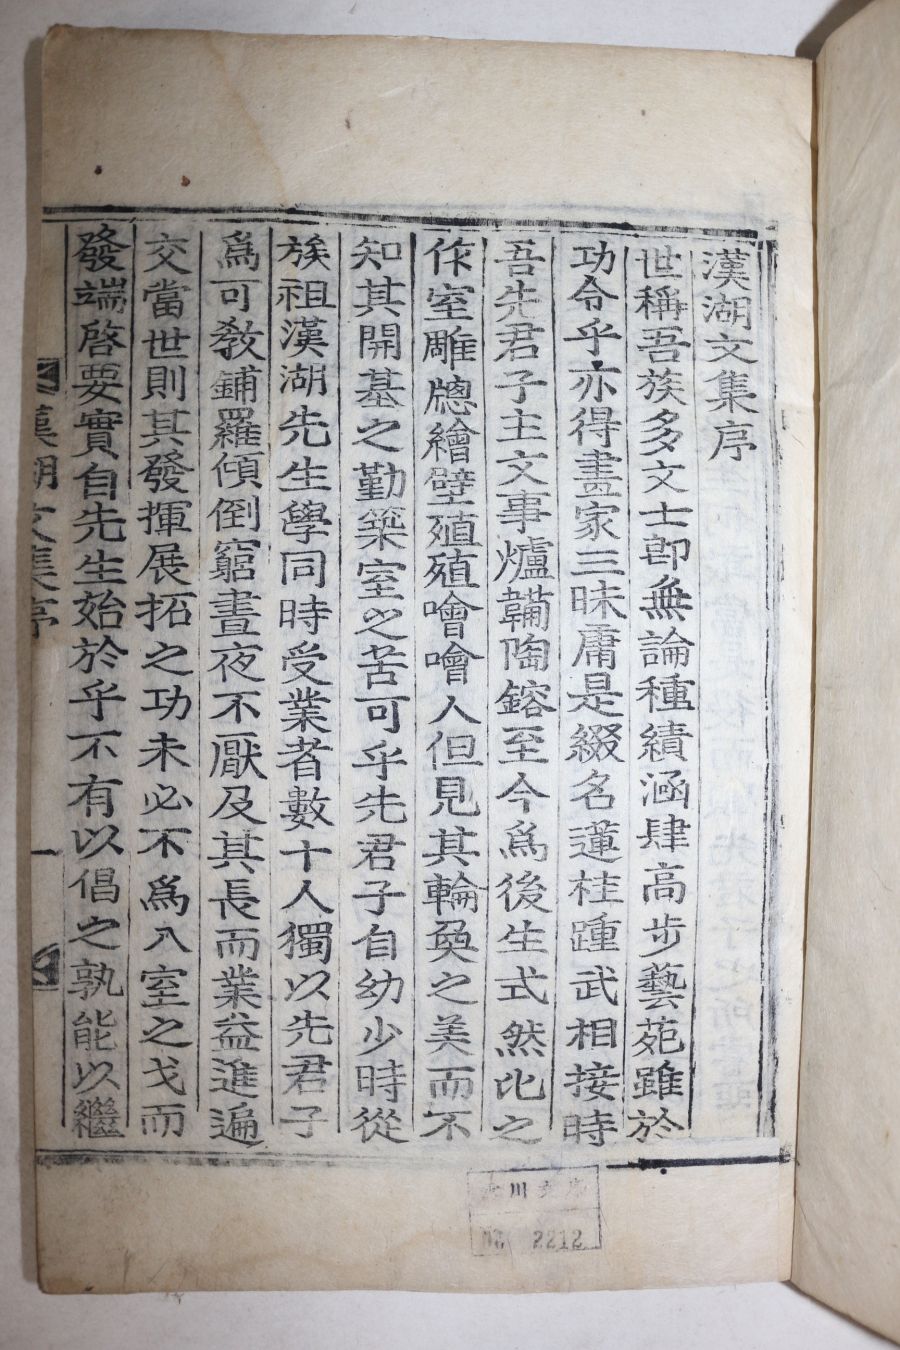 漢湖文集序
世稱吾族多文士卽無論種績涵肆高步藝苑雖於
功令乎亦得畫家三昧庸是綴名蓮桂踵武相接時
吾先君子主文事爐韛陶鎔至今爲後生式然比之
作室雕牕繪壁殖殖噲噲人但見其輪奐之美而不
知其開基之勤築室之苦可乎先君子自幼少時從
族祖漢湖先生學同時受業者數十人獨以先君子
爲可敎鋪羅傾倒窮晝夜不厭及其長而業益進遍
交當世則其發揮展拓之功未必不爲入室之戈而
發端啓要實自先生始於乎不有以倡之孰能以繼
漢湖文集序
一
川文
2212